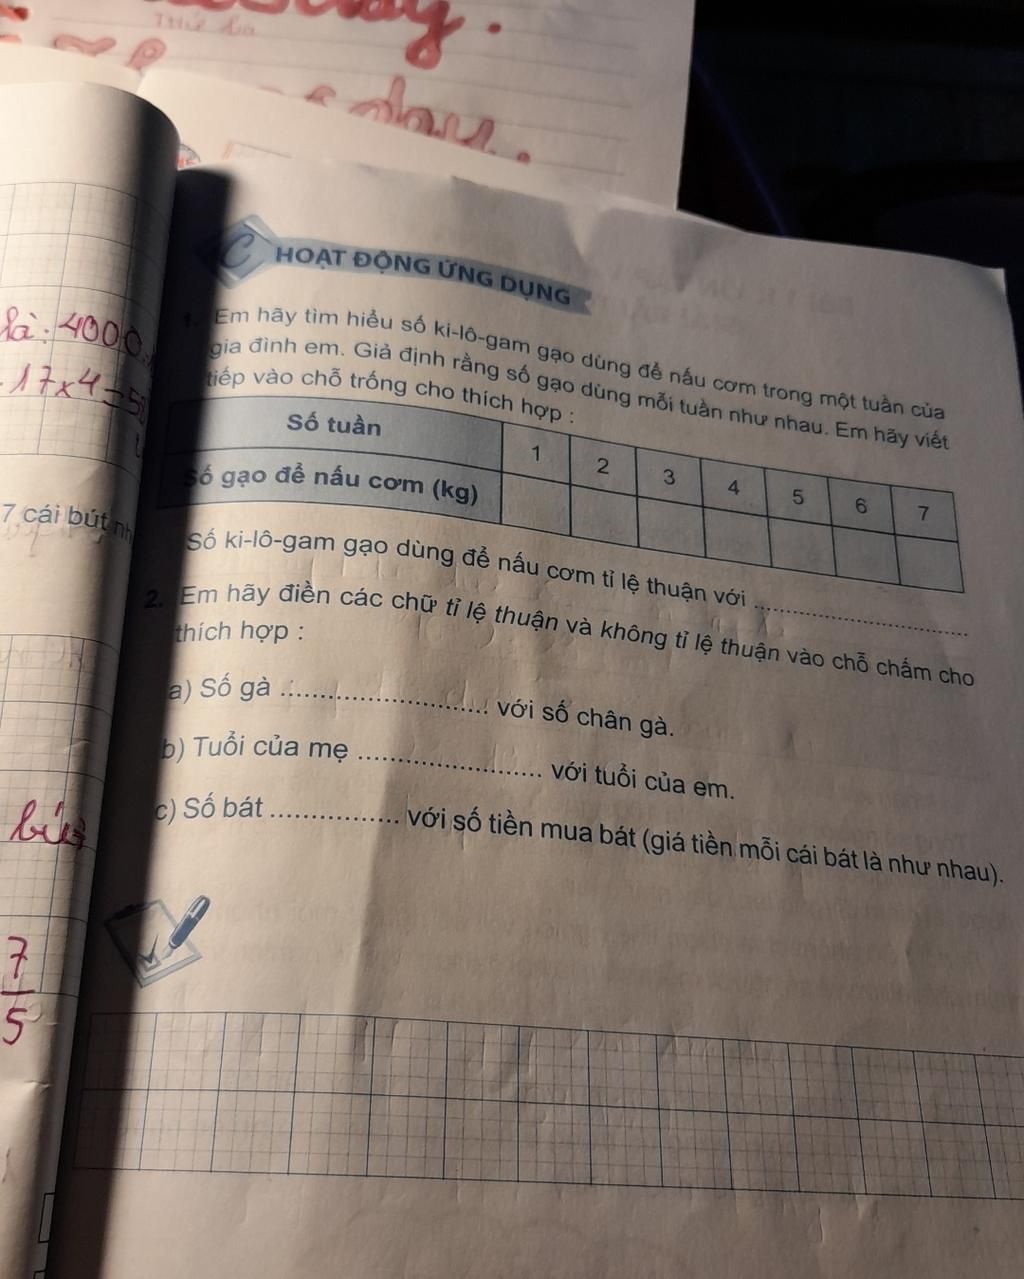 Thứ ba
day.
C HOẠT ĐỘNG ỨNG DỤNG
1. Em hãy tìm hiểu số ki-lô-gam gạo dùng để nấu cơm trong một tuần của
gia đình em. Giả định rằng số gạo dùng mỗi tuần như nhau. Em hãy viết
tiếp vào chỗ trống cho thích hợp :
Số tuần 1 2 3 4 5 6 7
Số gạo để nấu cơm (kg)
Số ki-lô-gam gạo dùng để nấu cơm tỉ lệ thuận với ........................
2. Em hãy điền các chữ tỉ lệ thuận và không tỉ lệ thuận vào chỗ chấm cho
thích hợp :
a) Số gà ........................ với số chân gà.
b) Tuổi của mẹ ........................ với tuổi của em.
c) Số bát ................ với số tiền mua bát (giá tiền mỗi cái bát là như nhau).
là: 4000
17x4=
7 cái bút
bút
7
5